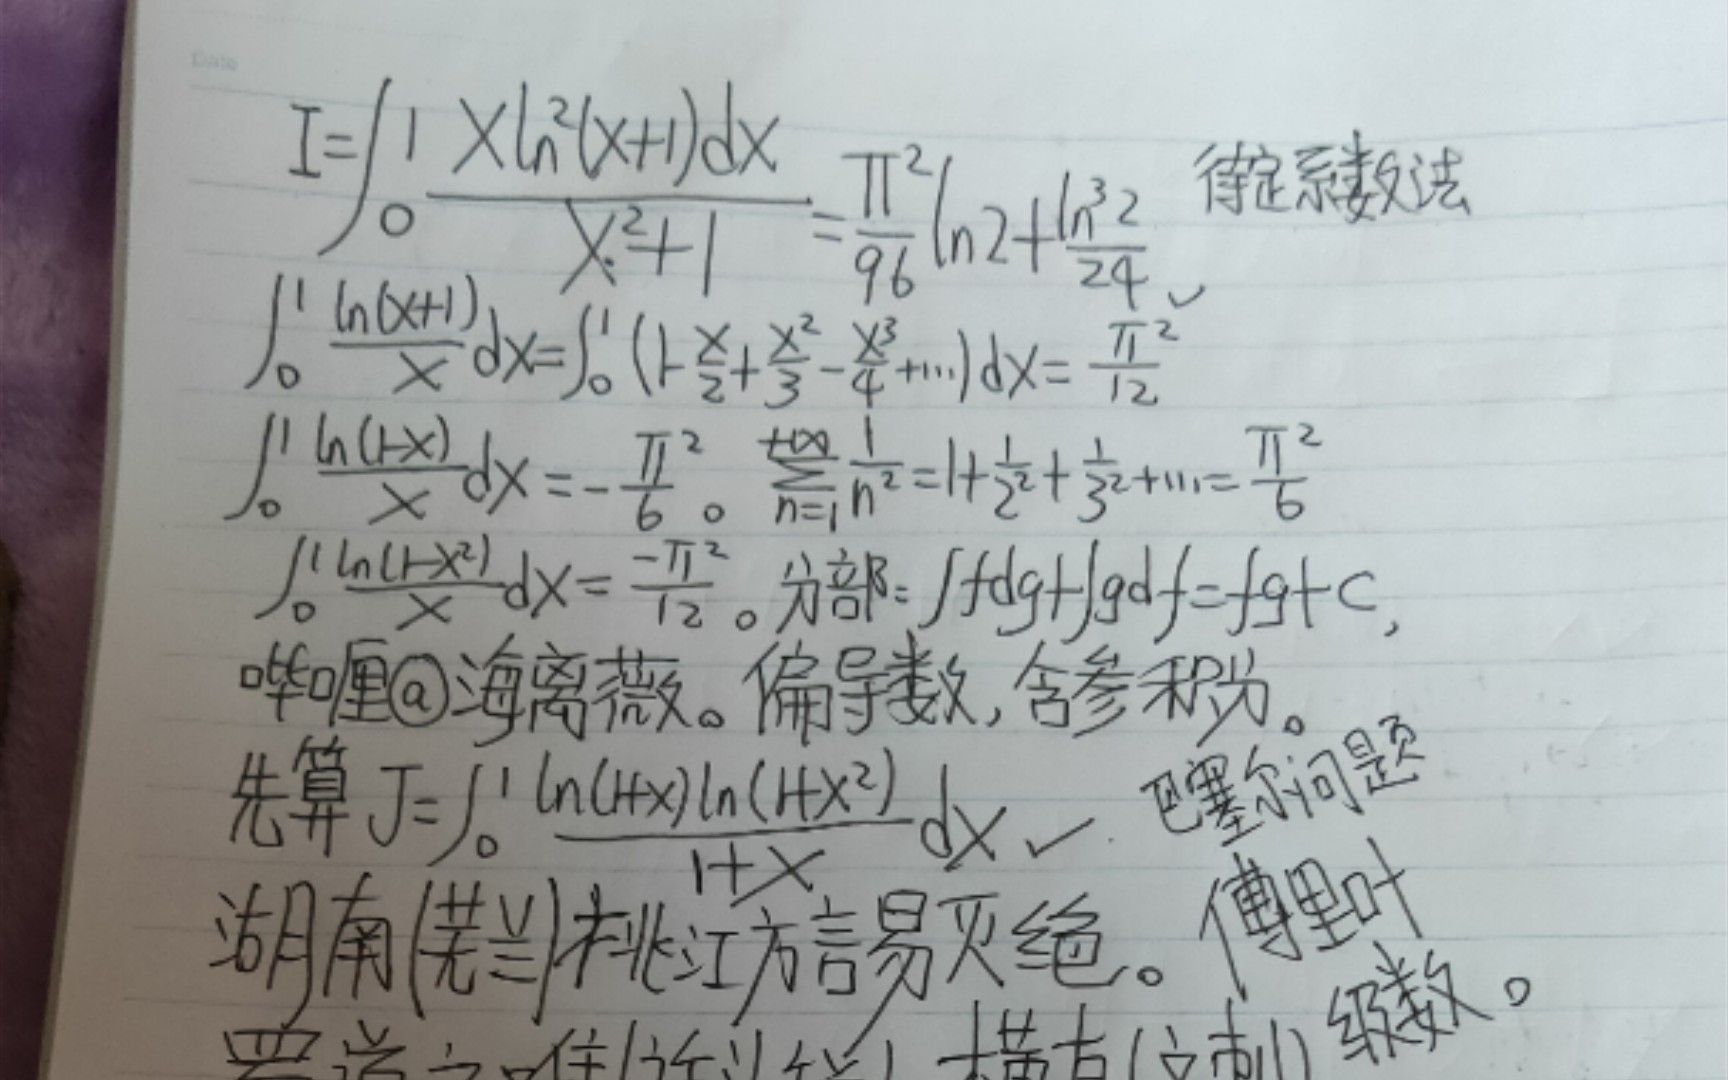 Date
I=∫₀¹ xln²(x+1)dx/(x²+1) = π²/96 ln2 + ln³2/24 待定系数法
∫₀¹ ln(x+1)/x dx=∫₀¹ (1-x/2+x²/3-x³/4+…)dx=π²/12
∫₀¹ ln(1-x)/x dx=-π²/6。∑ₙ₌₁⁺∞ 1/n²=1+1/2²+1/3²+…=π²/6
∫₀¹ ln(1-x²)/x dx=-π²/12。分部:∫fdg+∫gdf=fg+C,
哔哩@海离薇。偏导数,含参积分。
先算J=∫₀¹ ln(1+x)ln(1+x²)/(1+x) dx✓. 巴塞尔问题
湖南(芜兰)桃江方言易灭绝。傅里叶
级数。